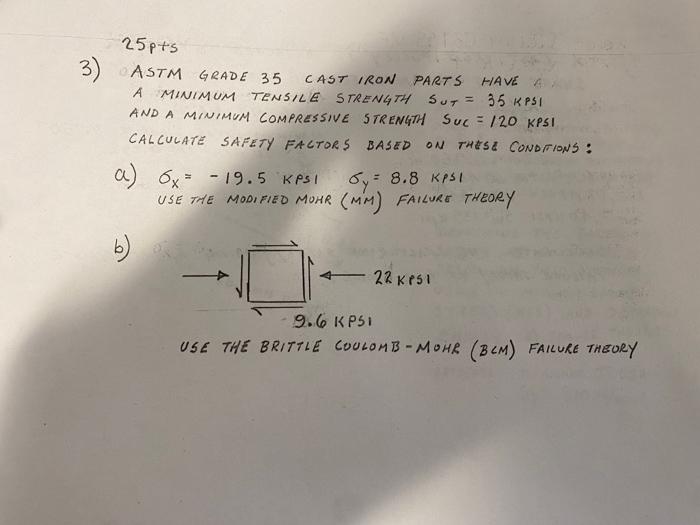 25pts
3) ASTM GRADE 35 CAST IRON PARTS HAVE A
A MINIMUM TENSILE STRENGTH SUT = 35 KPSI
AND A MINIMUM COMPRESSIVE STRENGTH SUC = 120 KPSI
CALCULATE SAFETY FACTORS BASED ON THESE CONDITIONS:
a) σx = -19.5 KPSI σy = 8.8 KPSI
USE THE MODIFIED MOHR (MM) FAILURE THEORY
b)
22 KPSI
9.6 KPSI
USE THE BRITTLE COULOMB-MOHR (BCM) FAILURE THEORY